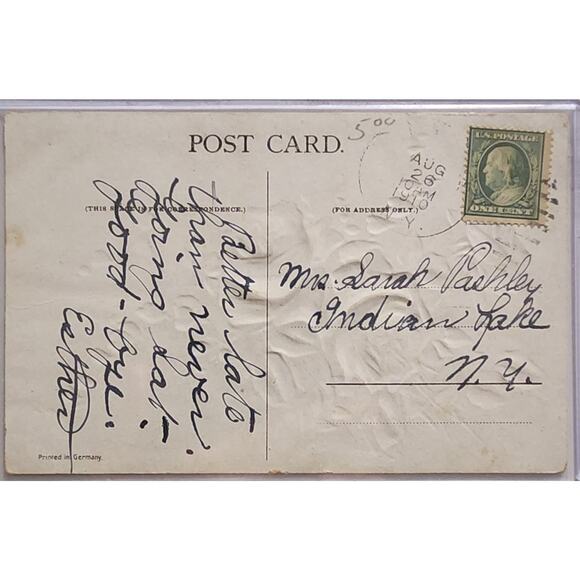 5 00
POST CARD.
U.S. POSTAGE
ONE CENT
AUG
26
AM
1910
N.Y.
(THIS SPACE IS FOR CORRESPONDENCE.)
(FOR ADDRESS ONLY.)
Better late
than never.
Good-bye.
Esther
Mrs Sarah Pashley
Indian Lake
N.Y.
Printed in Germany.